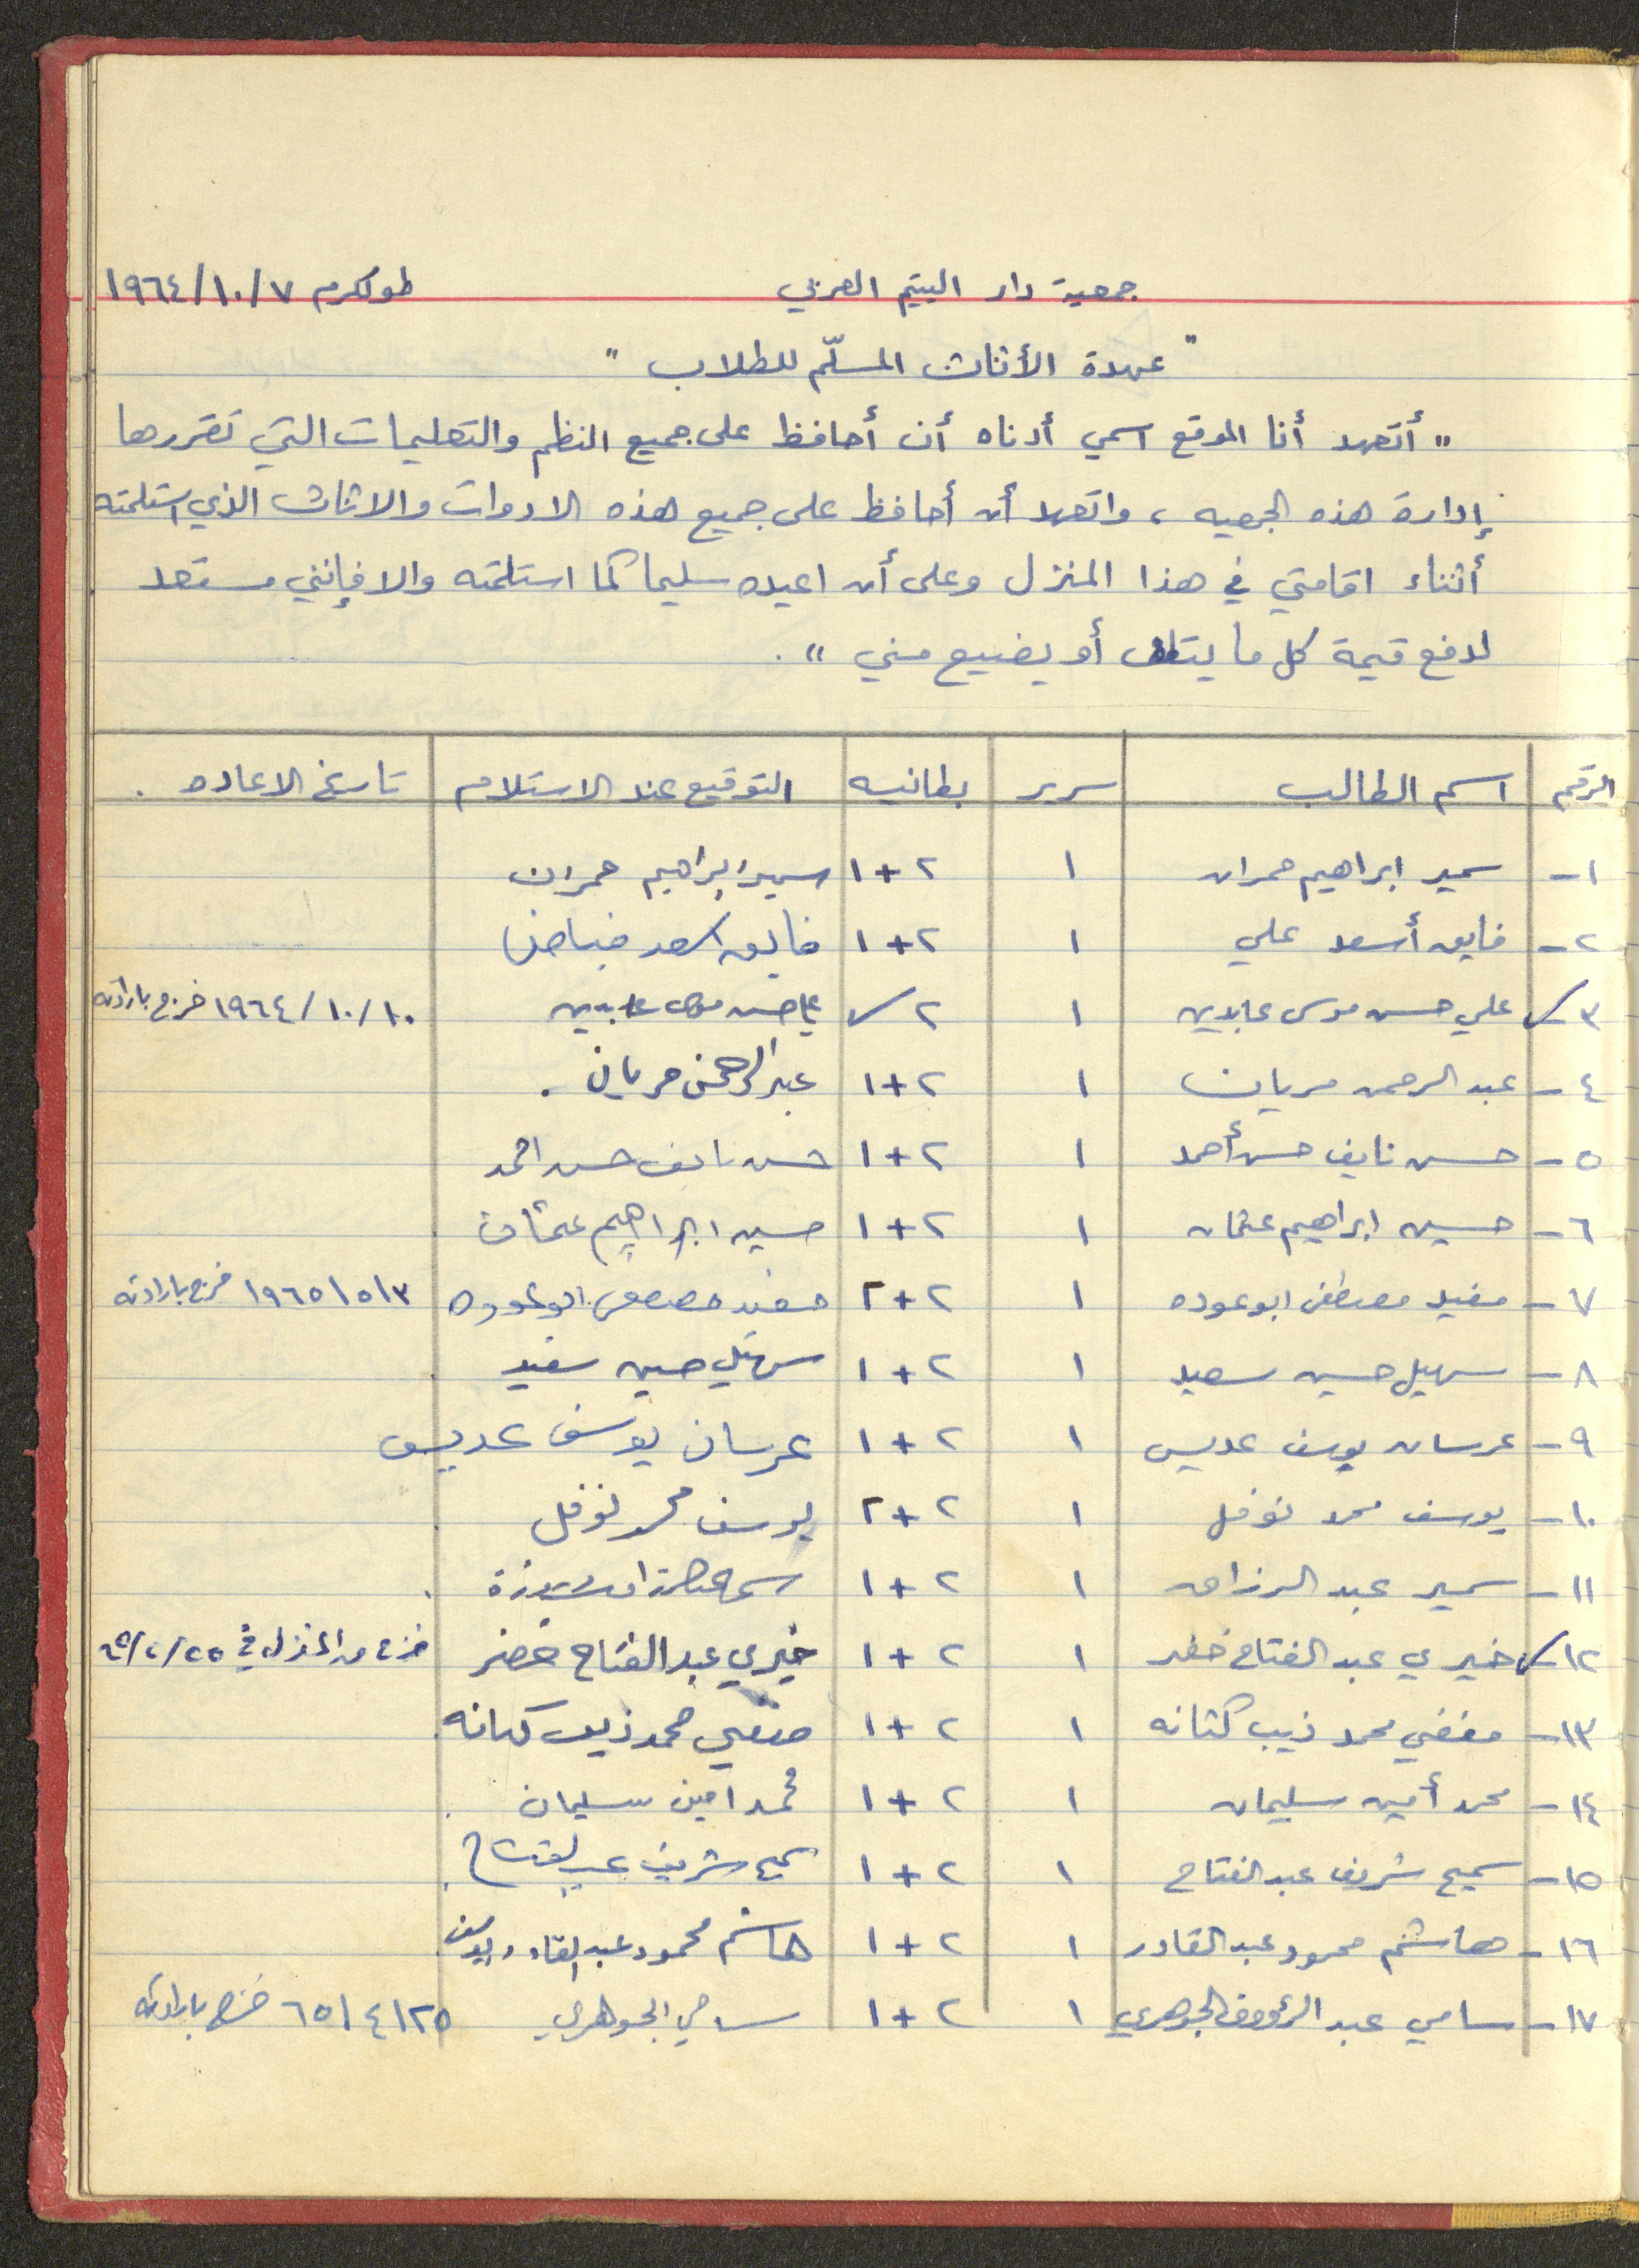 جمعية دار اليتيم العربي طولكرم ١٩٦٤/١٠/٧
" عهدة الأثاث المسلّم للطلاب "
" أتعهد أنا الموقع اسمي أدناه أن أحافظ على جميع النظم والتعليمات التي تقررها
إدارة هذه الجمعيه ، واتعهد أن أحافظ على جميع هذه الادوات والاثاث الذي استلمته
أثناء اقامتي في هذا المنزل وعلى أن اعيده سليما كما استلمته والا فإنني مستعد
لدفع قيمة كل ما يتلف أو يضيع مني " .
الرقم اسم الطالب سرير بطانيه التوقيع عند الاستلام تاريخ الاعاده .
١- سمير ابراهيم حمران ١ ٢+١ سمير ابراهيم حمران
٢- فايق أسعد علي ١ ٢+١ فايق اسعد
٣- علي حسن موسى عابدين ١ ٢ علي حسن موسى عابدين ١٩٦٤/١٠/١٠ خرج بارادته
٤- عبد الرحمن مريان ١ ٢+١ عبد الرحمن مريان .
٥- حسن نايف حسن أحمد ١ ٢+١ حسن نايف حسن احمد
٦- حسين ابراهيم عثمان ١ ٢+١ حسين ابراهيم عثمان
٧- مفيد مصطفى ابو عوده ١ ٢+٢ مفيد مصطفى ابو عوده ١٩٦٥/٥/٣ خرج بارادته
٨- سهيل حسين سعيد ١ ٢+١ سهيل حسين سعيد
٩- عرسان يوسف عديس ١ ٢+١ عرسان يوسف عديس
١٠- يوسف محمد نوفل ١ ٢+٢ يوسف محمد نوفل
١١- سمير عبد الرزاق ١ ٢+١
١٢- خيري عبد الفتاح خضر ١ ٢+١ خيري عبد الفتاح خضر خرج من المنزل في
١٣- مفضي محمد ذيب كتانه ١ ٢+١ محمد ذيب كتانه
١٤- محمد أمين سليمان ١ ٢+١ محمد امين سليمان
١٥- سميح شريف عبد الفتاح ١ ٢+١ سميح شريف عبد الفتاح
١٦- هاشم محمود عبد القادر ١ ٢+١ هاشم محمود عبد القادر يوسف
١٧- سامي عبد الرؤوف الجوهري ١ ٢+١ سامي الجوهري ٦٥/٤/٢٥ خرج بارادته